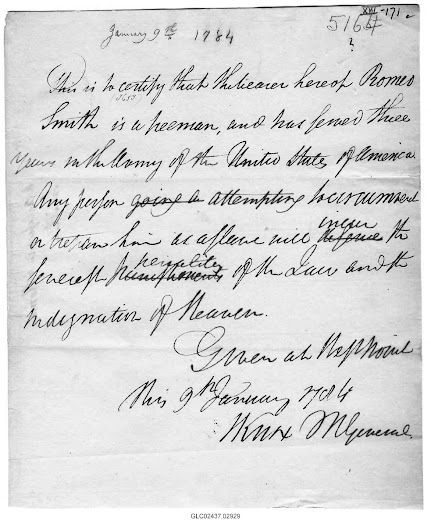 XVII-171
5164
?
January 9th 1784
This is to certify that the bearer hereof Romeo
Smith is a freeman, and has served three
years in the Army of the United States of America.
Any person going a attempting to circumvent
or treat him as a slave will incur deserve the
severest penalties punishments of the Law and the
indignation of Heaven.
Given at West Point
this 9th January 1784
HKnox MGeneral
GLC02437.02929